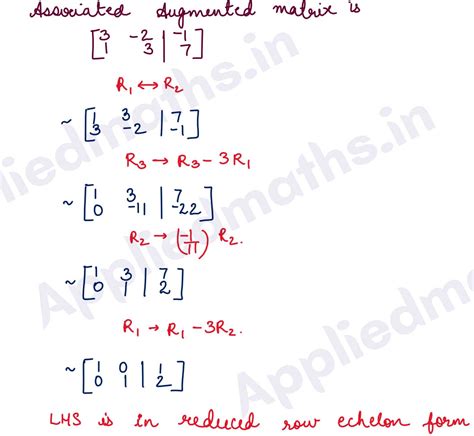 Associated Augmented matrix is
[3 -2 | -1
1 3 | 7]
R1 ↔ R2
~ [1 3 | 7
3 -2 | -1]
R3 → R3 - 3R1
~ [1 3 | 7
0 -11 | -22]
R2 → (-1/11) R2.
~ [1 3 | 7
0 1 | 2]
R1 → R1 - 3R2.
~ [1 0 | 1
0 1 | 2]
LHS is in reduced row echelon form
Appliedmaths.in
Appliedmaths.in